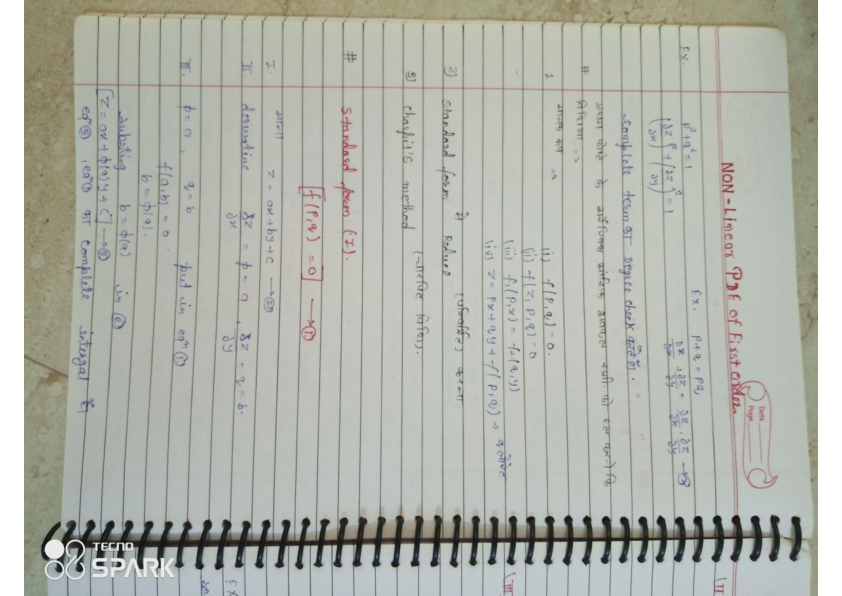 Date
Page
NON-Linear PDE of First Order
Ex. p²+q²=1 Ex. p+q = pq
(∂z/∂x)² + (∂z/∂y)² = 1 ∂z/∂x + ∂z/∂y = ∂z/∂x · ∂z/∂y
complete term का Degree check करते हैं।
# प्रथम कोटि के आंशिक अवकल को हल करने कि
विधियां ⇒
1. मानक रूप ⇒ (i) f(p,q)=0.
(ii) f(z,p,q)=0
(iii) f₁(p,x) = f₂(q,y)
(iv) z = px+qy+f(p,q) →
2) standard form में Reduce (परिवर्तित) करना
3) Charpit's method (चारपिट विधि).
# Standard form (I).
f(p,q)=0 → ①
I. माना z = ax+by+c → ②
II. derivative ∂z/∂x = p = a, ∂z/∂y = q = b.
III. p=a, q=b put in eqⁿ ①
f(a,b) = 0
b = ϕ(a).
b = ϕ(a) in ②
[z = ax+ϕ(a)y+c] → ③
eqⁿ③, eqⁿ① का complete intergal है।
TECNO
SPARK